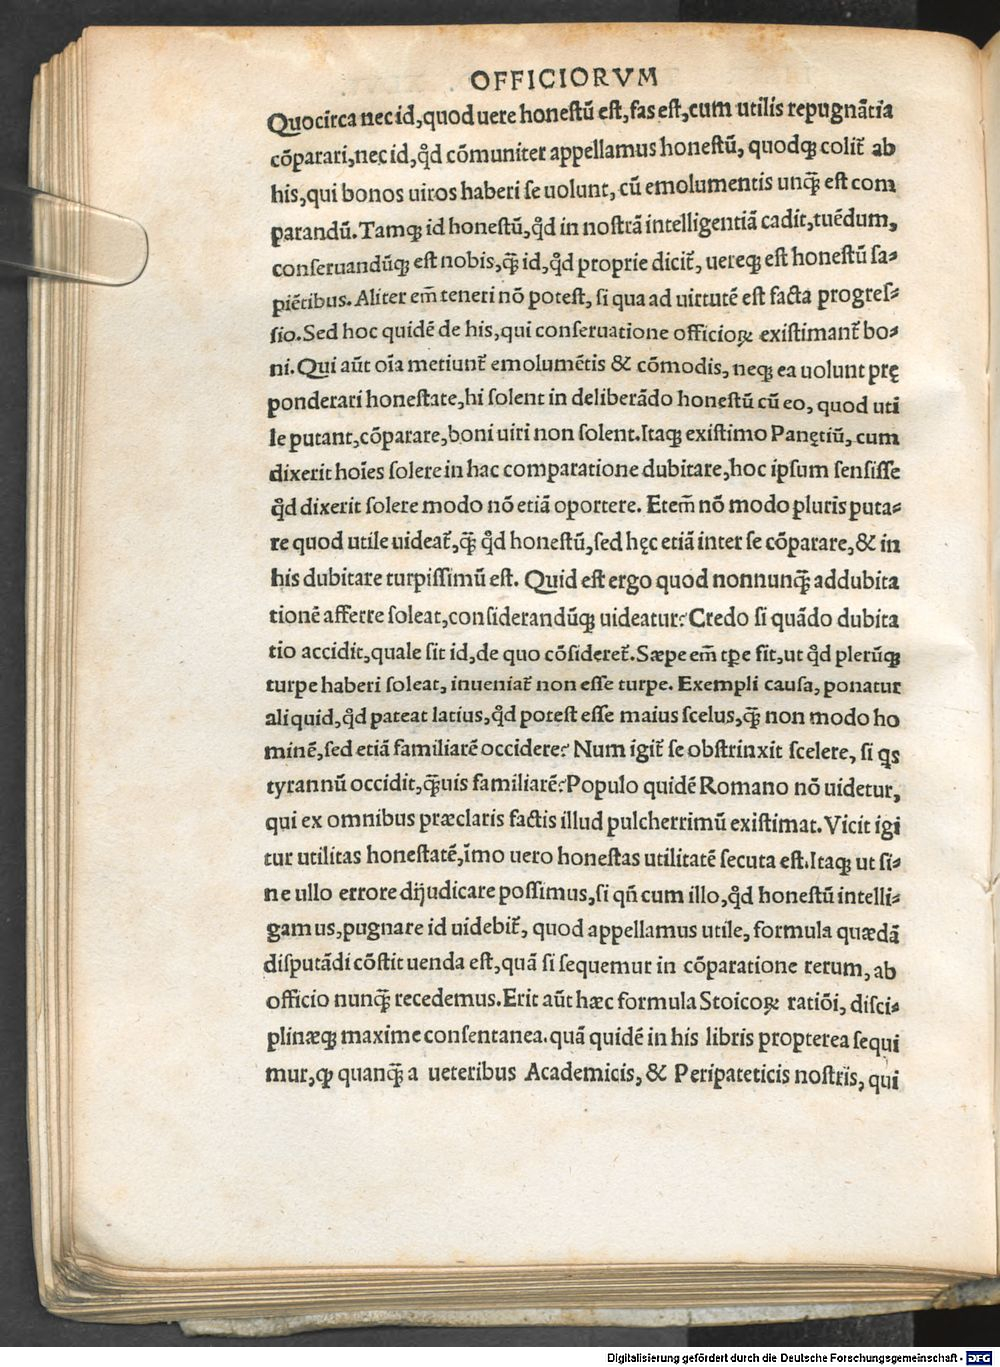 OFFICIORVM
Quocirca nec id, quod uere honestũ est, fas est, cum utilis repugnãtia
cõparari, nec id, qd̉ cõmuniter appellamus honestũ, quodqꝫ colit᷑ ab
his, qui bonos uiros haberi se uolunt, cũ emolumentis unqꝫ̃ est com
parandũ. Tamqꝫ id honestũ, qd̉ in nostrã intelligentiã cadit, tuẽdum,
conseruandũqꝫ est nobis, qꝫ̃ id, qd̉ proprie dicit᷑, uereqꝫ est honestũ sa-
piẽtibus. Aliter em̃ teneri nõ potest, si qua ad uirtutẽ est facta progres-
sio. Sed hoc quidẽ de his, qui conseruatione officioꝝ existimant᷑ bo-
ni. Qui aũt oĩa metiunt᷑ emolumẽtis & cõmodis, neqꝫ ea uolunt prę
ponderari honestate, hi solent in deliberãdo honestũ cũ eo, quod uti
le putant, cõparare, boni uiri non solent. Itaqꝫ existimo Panętiũ, cum
dixerit hoĩes solere in hac comparatione dubitare, hoc ipsum sensisse
qd̉ dixerit solere modo nõ etiã oportere. Etem̃ nõ modo pluris puta-
re quod utile uideat᷑, qꝫ̃ qd̉ honestũ, sed hęc etiã inter se cõparare, & in
his dubitare turpissimũ est. Quid est ergo quod nonnunqꝫ̃ addubita
tionẽ afferre soleat, considerandũqꝫ uideatur? Credo si quãdo dubita
tio accidit, quale sit id, de quo cõsideret᷑. Sæpe em̃ tꝑe fit, ut qd̉ plerũqꝫ
turpe haberi soleat, inueniat᷑ non esse turpe. Exempli causa, ponatur
aliquid, qd̉ pateat latius, qd̉ potest esse maius scelus, qꝫ̃ non modo ho
minẽ, sed etiã familiarẽ occidere? Num igit᷑ se obstrinxit scelere, si qs
tyrannũ occidit, qꝫ̃uis familiarẽ? Populo quidẽ Romano nõ uidetur,
qui ex omnibus præclaris factis illud pulcherrimũ existimat. Vicit igi
tur utilitas honestatẽ, ĩmo uero honestas utilitatẽ secuta est. Itaqꝫ ut si-
ne ullo errore dijudicare possimus, si qñ cum illo, qd̉ honestũ intelli-
gamus, pugnare id uidebit᷑, quod appellamus utile, formula quædã
disputãdi cõstituenda est, quã si sequemur in cõparatione rerum, ab
officio nunqꝫ̃ recedemus. Erit aũt hæc formula Stoicoꝝ ratiõi, disci-
plinæqꝫ maxime consentanea. quã quidẽ in his libris propterea sequi
mur, ꝙ quanqꝫ̃ a ueteribus Academicis, & Peripateticis nostris, qui
Digitalisierung gefördert durch die Deutsche Forschungsgemeinschaft - DFG